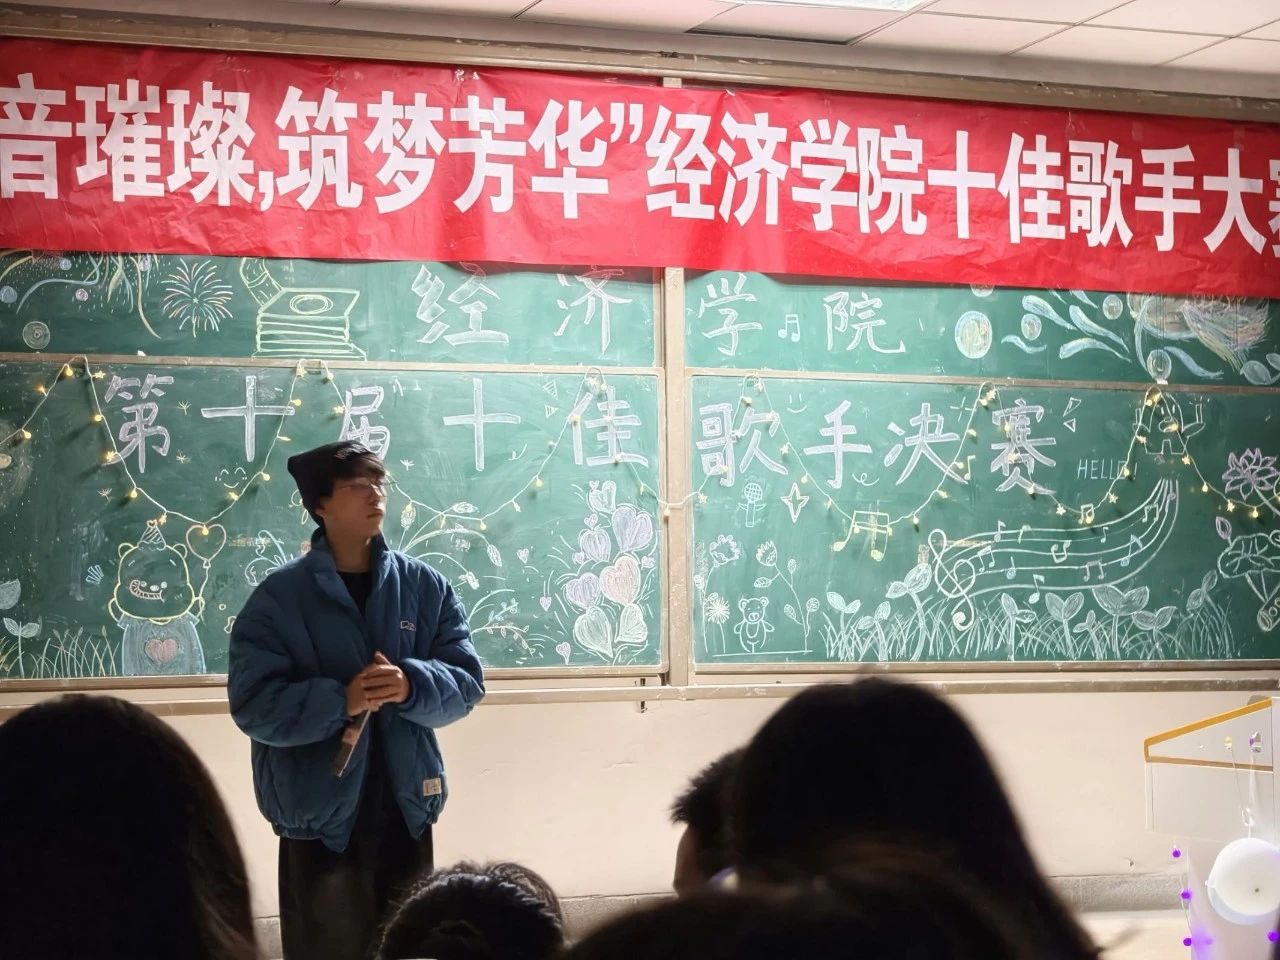 音璀璨,筑梦芳华”经济学院十佳歌手大赛
经济学院
第十届十佳歌手决赛
HELLO!